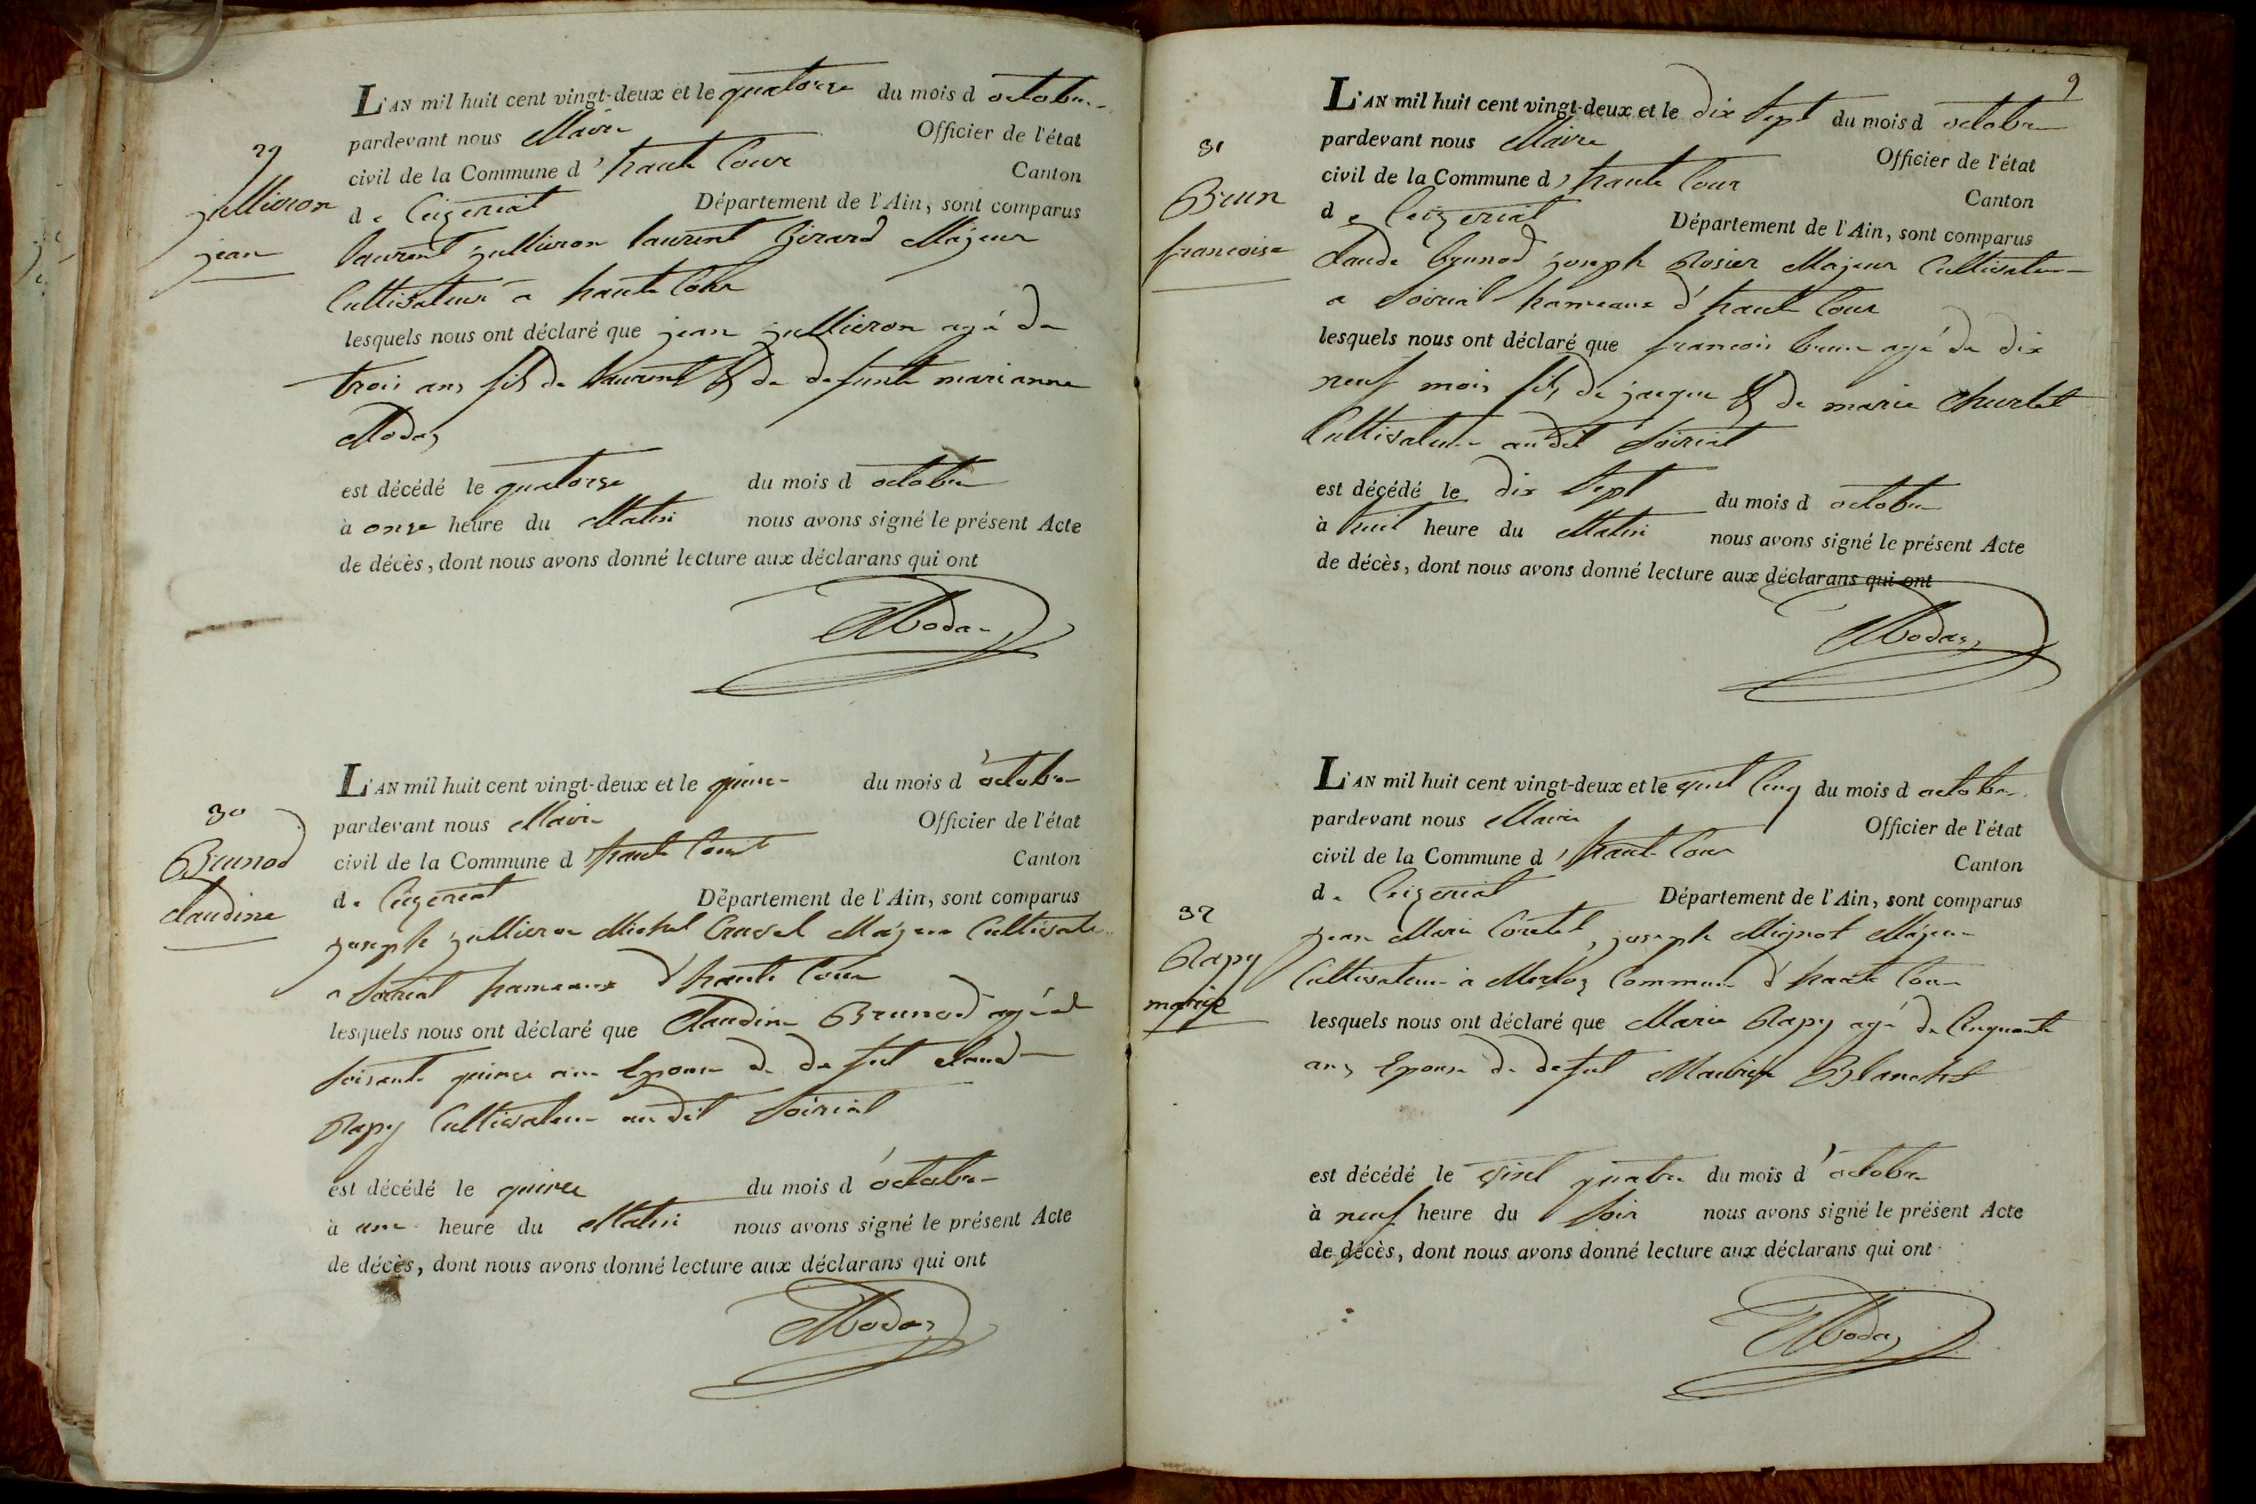 L'AN mil huit cent vingt-deux et le quatorze du mois d octobre
pardevant nous Maire Officier de l'état
civil de la Commune d'haute Cour Canton
de Ceizeriat Département de l'Ain, sont comparus
laurent jullieron laurent Girard Majeur
Cultivateur a haute Cour
lesquels nous ont déclaré que jean jullieron agé de
trois ans fils de laurent & de defunte marianne
Modas
est décédé le quatorze du mois d octobre
à onze heure du Matin nous avons signé le présent Acte
de décès, dont nous avons donné lecture aux déclarans qui ont
Modas
29
jullieron
jean
L'AN mil huit cent vingt-deux et le quinze du mois d'octobre
pardevant nous Maire Officier de l'état
civil de la Commune d'haute Cour Canton
de Ceizeriat Département de l'Ain, sont comparus
joseph jullieron Michel Cravel Majeur Cultivateur
a Soiriat hameaux d'haute Cour
lesquels nous ont déclaré que Claudine Brunod agé de
soisante quinze ans Epouse de defut claude
Rapy Cultivateur audit Soiriat
est décédé le quinze du mois d'octobre
à une heure du Matin nous avons signé le présent Acte
de décès, dont nous avons donné lecture aux déclarans qui ont
Modas
30
Brunod
claudine
9
L'AN mil huit cent vingt-deux et le dix sept du mois d octobre
pardevant nous Maire Officier de l'état
civil de la Commune d'haute Cour Canton
de Ceizeriat Département de l'Ain, sont comparus
Claude brunod joseph Rosier Majeur Cultivateur
a Soiriat hameaux d'haute Cour
lesquels nous ont déclaré que francois brun agé de dix
neuf mois fils de jaque & de marie Churlet
Cultivateur audit Soiriat
est décédé le dix sept du mois d octobre
à huit heure du Matin nous avons signé le présent Acte
de décès, dont nous avons donné lecture aux déclarans qui ont
Modas
31
Brun
francoise
L'AN mil huit cent vingt-deux et le vint Cinq du mois d octobre
pardevant nous Maire Officier de l'état
civil de la Commune d'haute Cour Canton
de Ceizeriat Département de l'Ain, sont comparus
jean Marie Coretet, joseph Mignot Majeur
Cultivateur a Merloz Commune d'haute Cour
lesquels nous ont déclaré que Marie Rapy agé de Cinquante
ans Epouse de defut Maurice Blanchet
est décédé le vint quatre du mois d'octobre
à neuf heure du Soir nous avons signé le présent Acte
de décès, dont nous avons donné lecture aux déclarans qui ont
Modas
32
Rapy
marie